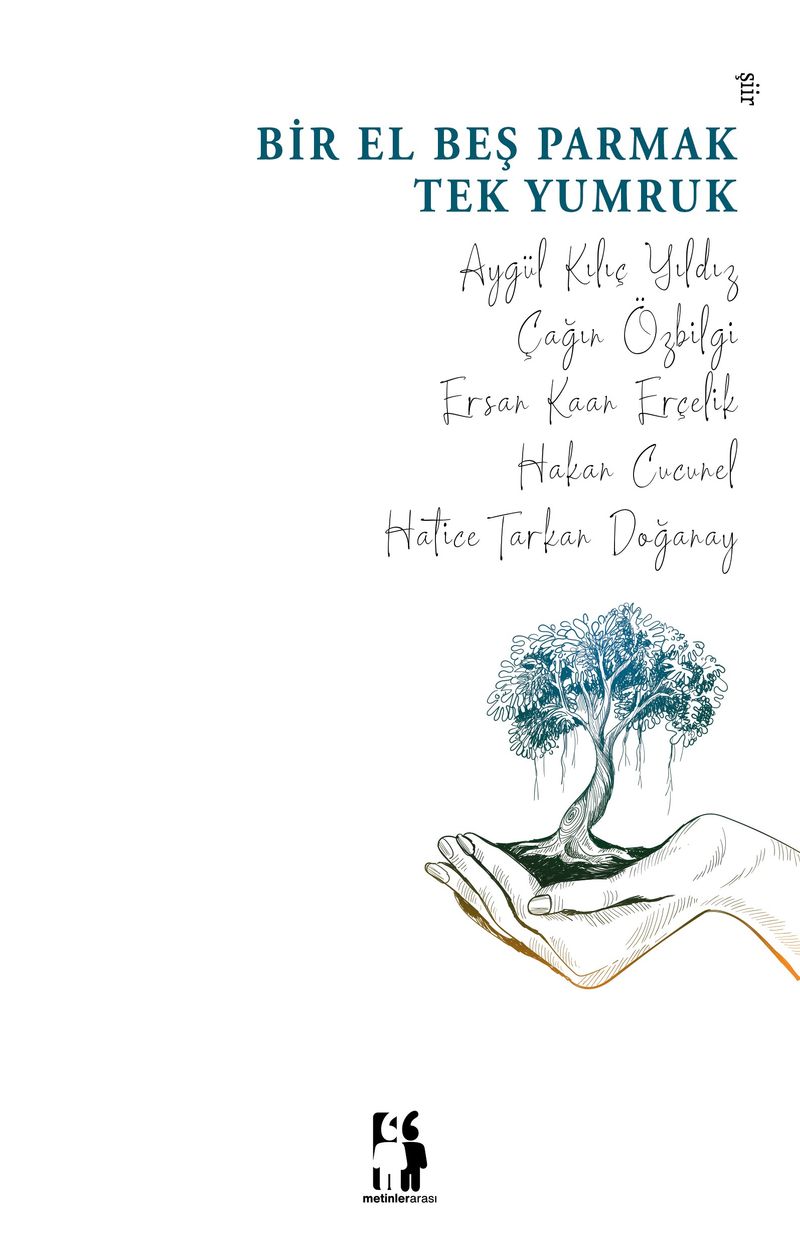 şiir
BİR EL BEŞ PARMAK
TEK YUMRUK
Aygül Kılıç Yıldız
Çağın Özbilgi
Ersan Kaan Erçelik
Hakan Cucunel
Hatice Tarkan Doğanay
metinlerarası